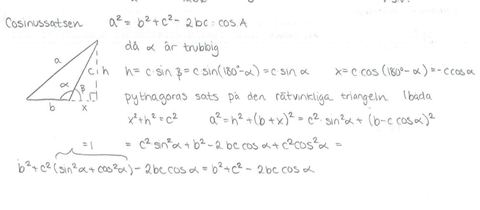 Cosinussatsen a² = b² + c² - 2bc · cos A
då α är trubbig
h = c · sin β = c sin(180° - α) = c sin α x = c cos(180° - α) = -c cos α
pythagoras sats på den rätvinkliga triangeln (båda
x² + h² = c² a² = h² + (b + x)² = c² · sin² α + (b - c cos α)²
= c² sin² α + b² - 2bc cos α + c² cos² α =
=1
b² + c² (sin² α + cos² α) - 2bc cos α = b² + c² - 2bc cos α
a
c
h
α
β
b
x